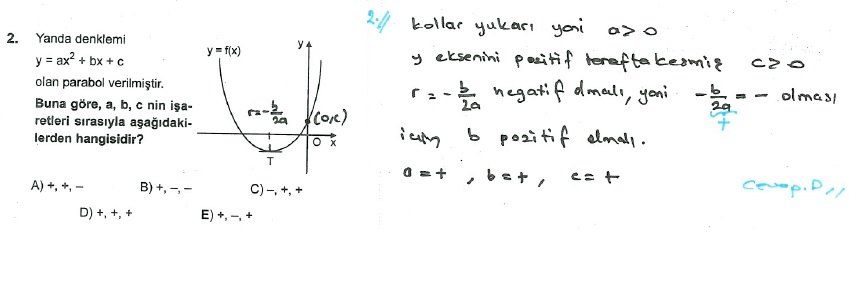 2. Yanda denklemi
y = ax² + bx + c
olan parabol verilmiştir.
Buna göre, a, b, c nin işa-
retleri sırasıyla aşağıdaki-
lerden hangisidir?
y = f(x)
y
r=-b/2a
(0,c)
O x
T
A) +, +, – B) +, –, – C) –, +, +
D) +, +, + E) +, –, +
2.//
kollar yukarı yani a>0
y eksenini pozitif tarafta kesmiş c>0
r = - b/2a negatif olmalı, yani - b/2a = - olması
+
için b pozitif olmalı.
a = + , b = + , c = +
Cevap. D //